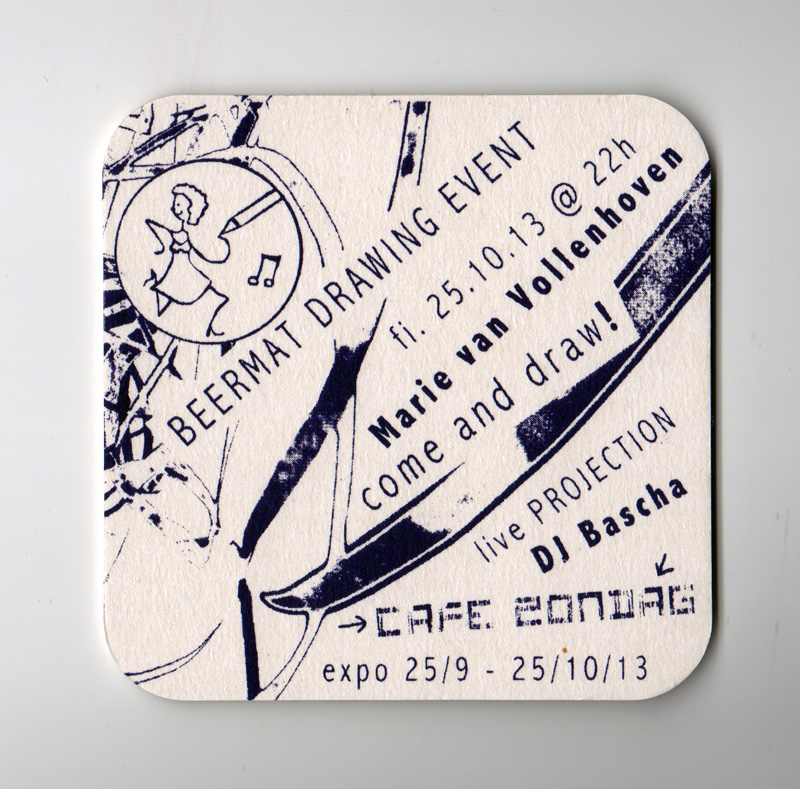 BEERMAT DRAWING EVENT
fi. 25.10.13 @ 22h
Marie van Vollenhoven
come and draw!
live PROJECTION
DJ Bascha
→CAFE ZONDAG
expo 25/9 - 25/10/13